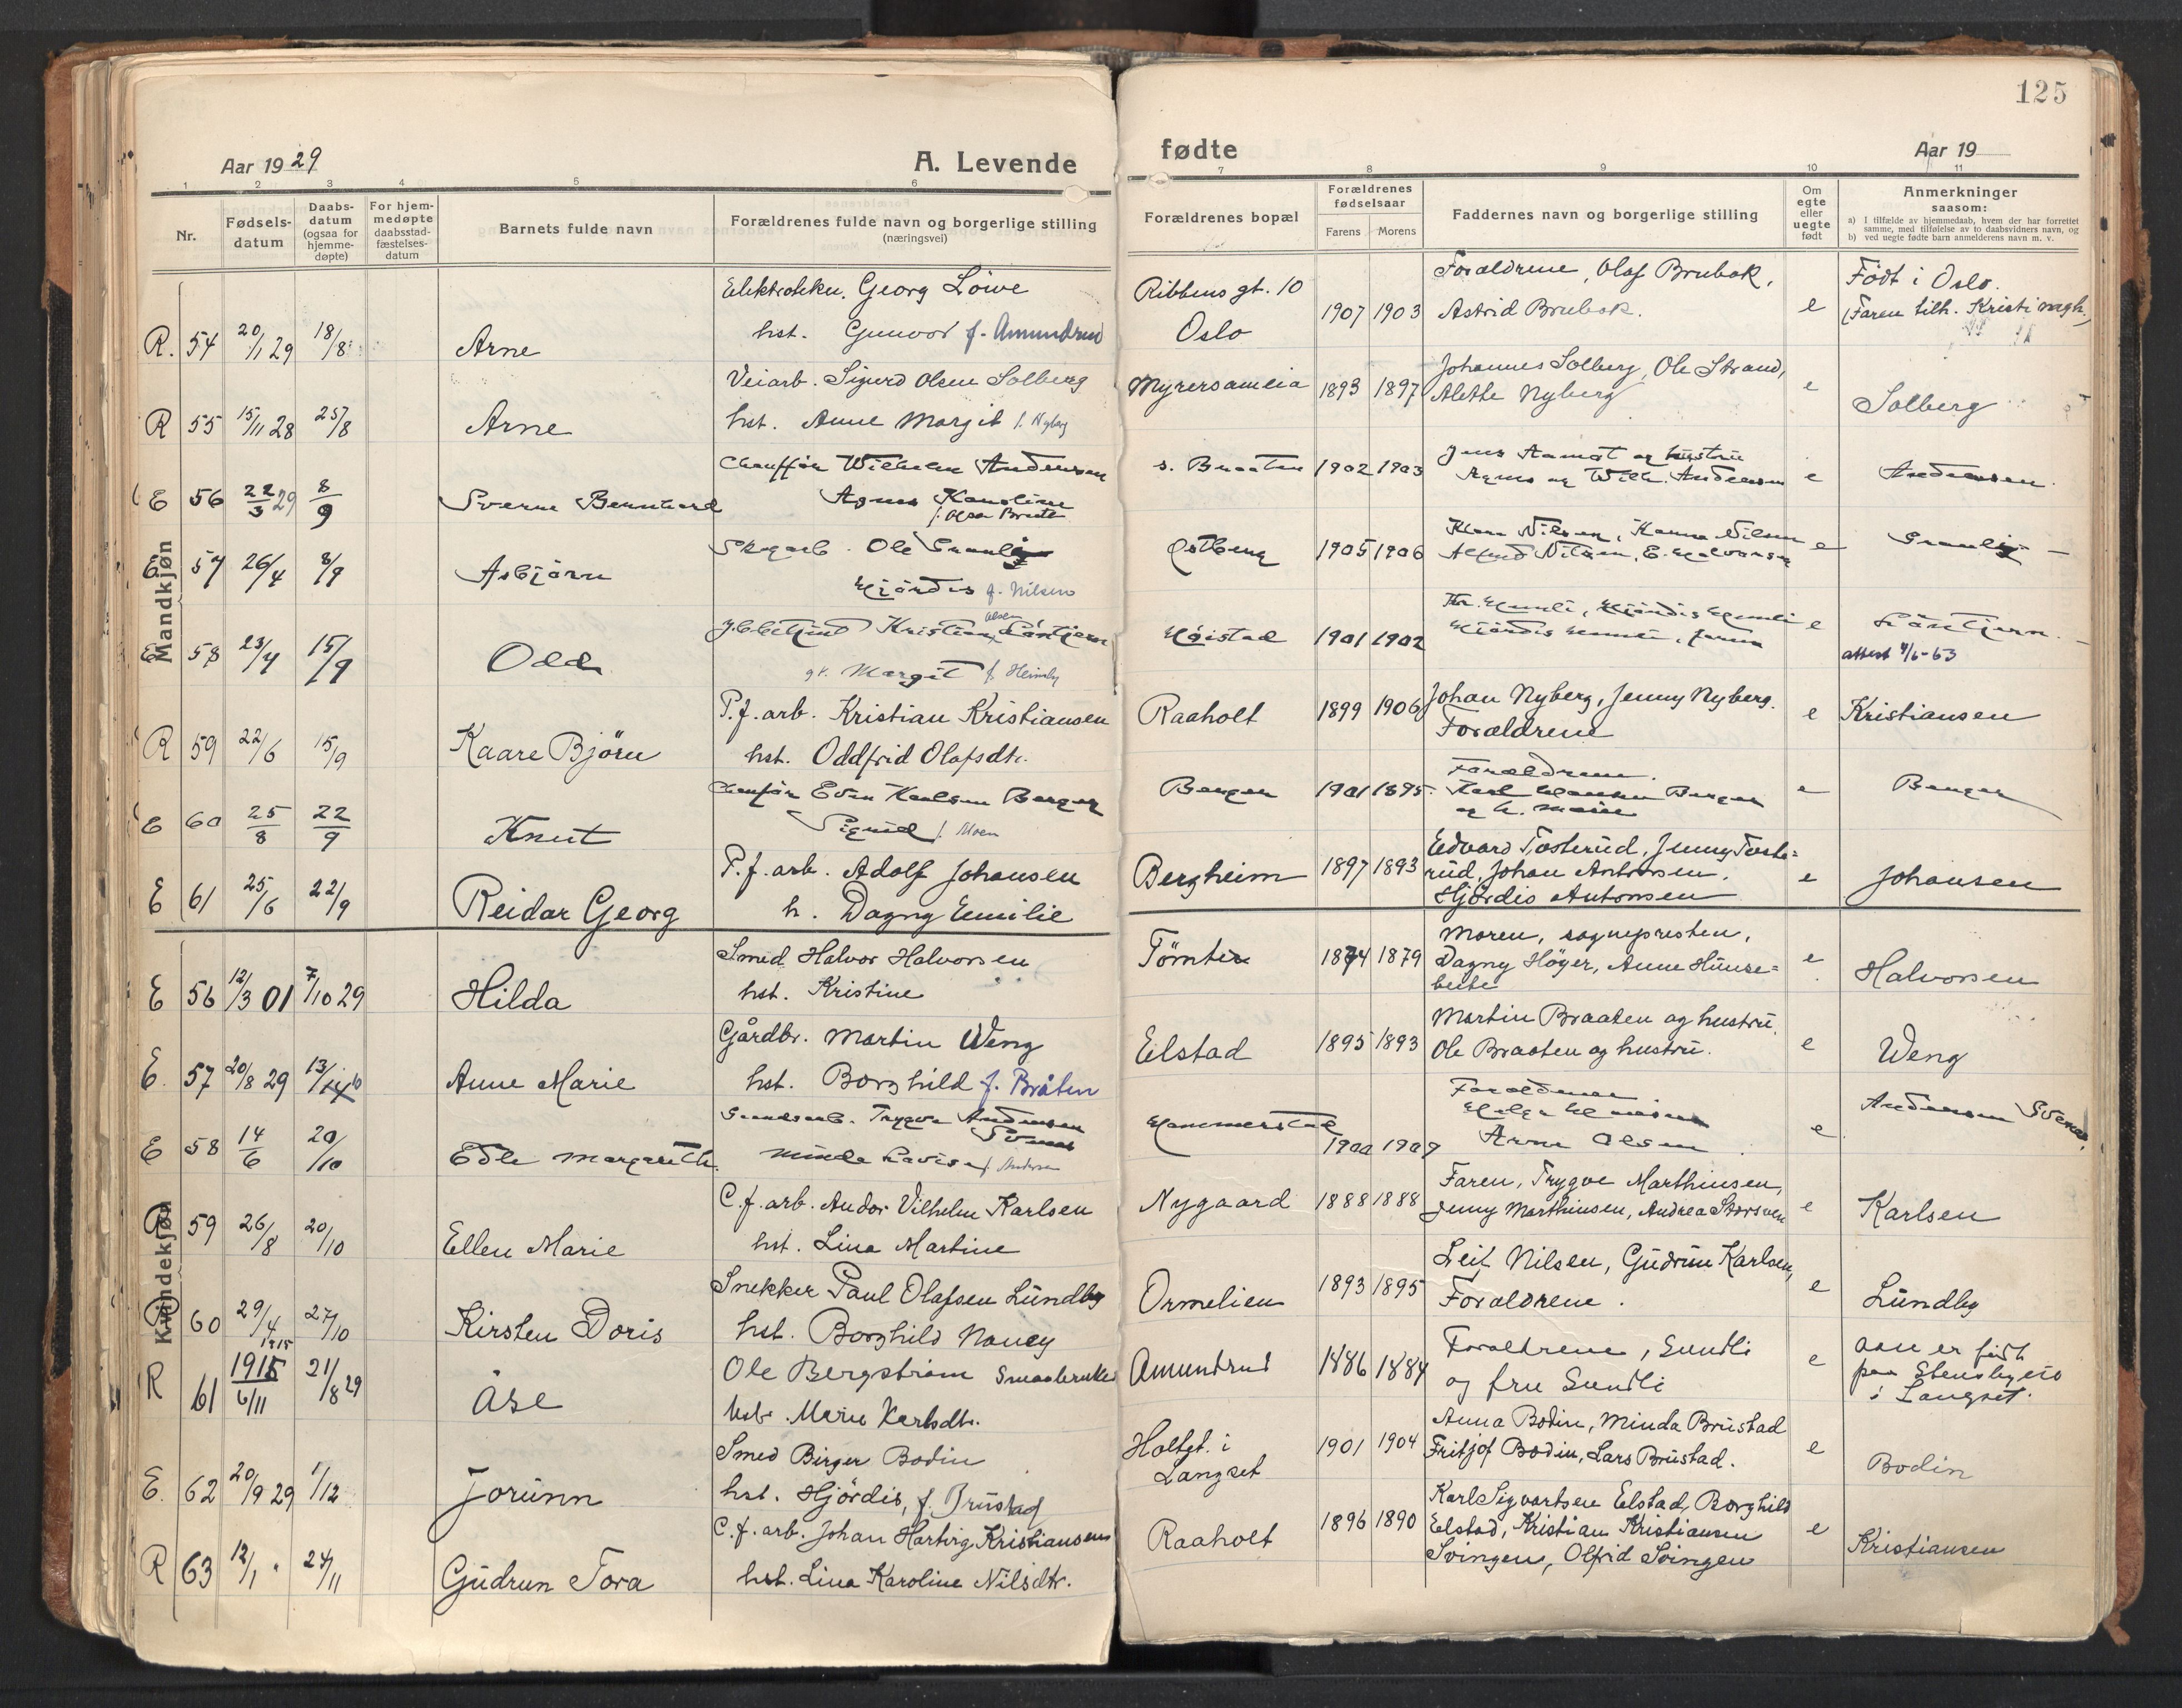 125
Aar 1929
A. Levende
fødte
Aar 19
1 2 3 4 5 6
7 8 9 10 11
Nr.
Fødsels-
datum
Daabs-
datum
(ogsaa for
hjemme-
døpte)
For hjem-
medøpte
daabsstad-
fæstelses-
datum
Barnets fulde navn
Forældrenes fulde navn og borgerlige stilling
(næringsvei)
Forældrenes bopæl
Forældrenes
fødselsaar
Farens Morens
Faddernes navn og borgerlige stilling
Om
egte
eller
uegte
født
Anmerkninger
saasom:
a) I tilfælde av hjemmedaab, hvem der har forrettet
samme, med tilføielse av to daabsvidners navn, og
b) ved uegte fødte barn anmelderens navn m. v.
Mandkjøn
R. 54 20/1 29 18/8 Arne
Georg Löwe
hst. Gunvor f. Amundrud
Ribbens gt. 10
Oslo
1907 1903
Foraldrene, Olaf Brubak,
Astrid Brubak.
e
Født i Oslo.
(Faren tilh. Kristi
R 55 15/11 28 25/8 Arne
Veiarb. Sigurd Olsen Solberg
hst. Anne Margit f. Nyberg
1893 1897
Johannes Solberg, Ole Strand,
Alethe Nyberg
e
Solberg
E 56 22/3 29 8/9 Sverre Bernhard
Chauffør Wilhelm Andersen
Agnes Karoline
1902 1903
Jens Aamot og hustru
Agnes og Wilh. Andersen
e
Andersen
E 57 26/4 8/9 Asbjørn
Skogarb. Ole
Hjørdis f. Nilsen
Østberg
1905 1906
Nilsen, Nilsen
Nilsen, E. Halvorsen
e
E 58 23/4 15/9 Odd
Kristian Olsen
Margit f. Heimly
Høistad
1901 1902
e
attest
R 59 22/6 15/9 Kaare Bjørn
P.f. arb. Kristian Kristiansen
hst. Oddfrid Olafsdtr.
Raaholt
1899 1906
Johan Nyberg, Jenny Nyberg.
Foraldrene
e
Kristiansen
E 60 25/8 22/9 Knut
Chauffør Even Karlsen Berger
Sigrid f. Moen
Berger
1901 1895
Foraldrene.
Karl Berger
og h. Marie
e
Berger
E 61 25/6 22/9 Reidar Georg
P.f. arb. Adolf Johansen
h. Dagny Emilie
Bergheim
1897 1893
Edvard Tosterud, Jenny Toste=
rud, Johan Antonsen,
Hjördis Antonsen
e
Johansen
Kvindekjøn
E 56 12/3 01 7/10 29 Hilda
Smed Halvor Halvorsen
hst. Kristine
Tömte
1874 1879
Moren, sognepresten,
Dagny Höyer, Anne Hunse=
bethe
e
Halvorsen
E. 57 20/8 29 13/10 Anne Marie
Gårdbr. Martin Weng
hst. Borghild f. Bråten
Eilstad
1895 1893
Martin Braaten og hustru.
Ole Braaten og hustru.
e
Weng
E 58 14/6 20/10 Edle Margareth.
Trygve Andersen
Minda Lovise f. Andersen
Hammerstad
1900 1907
Foraldrene
Arne Olsen
e
Andersen
R 59 26/8 20/10 Ellen Marie
C.f. arb. Andor Vilhelm Karlsen
hst. Lina Martine
Nygaard
1888 1888
Faren, Trygve Marthinsen,
Jenny Marthinsen, Andrea Storsveen
e
Karlsen
R 60 29/4 27/10 Kirsten Doris
Snekker Paul Olafsen Lundby
hst. Borghild Nancy
Ormelien
1893 1895
Leif Nilsen, Gudrun Karlsen,
Foraldrene.
e
Lundby
R 61 1915 6/11 21/8 29 Åse
Ole Bergström Smaabruker
hst. Marie Karlsdtr.
Amundrud
1886 1884
Foraldrene, Sundli
og fru Sundli
e
er født
paa
i Langset.
E. 62 20/9 29 1/12 Jorunn
Smed Birger Bodin
hst. Hjördis, f. Brustad
Holtgt. i
Langset
1901 1904
Anna Bodin, Minda Brustad
Fritjof Bodin, Lars Brustad.
e
Bodin
R 63 12/1 " 24/11 Gudrun Tora
C.f. arb. Johan Hartvig Kristiansen
hst. Lina Karoline Nilsdtr.
Raaholt
1896 1890
Karl Sigvartsen Eilstad, Borghild
Eilstad, Kristian Kristiansen
Svingen, Olfrid Svingen
e
Kristiansen